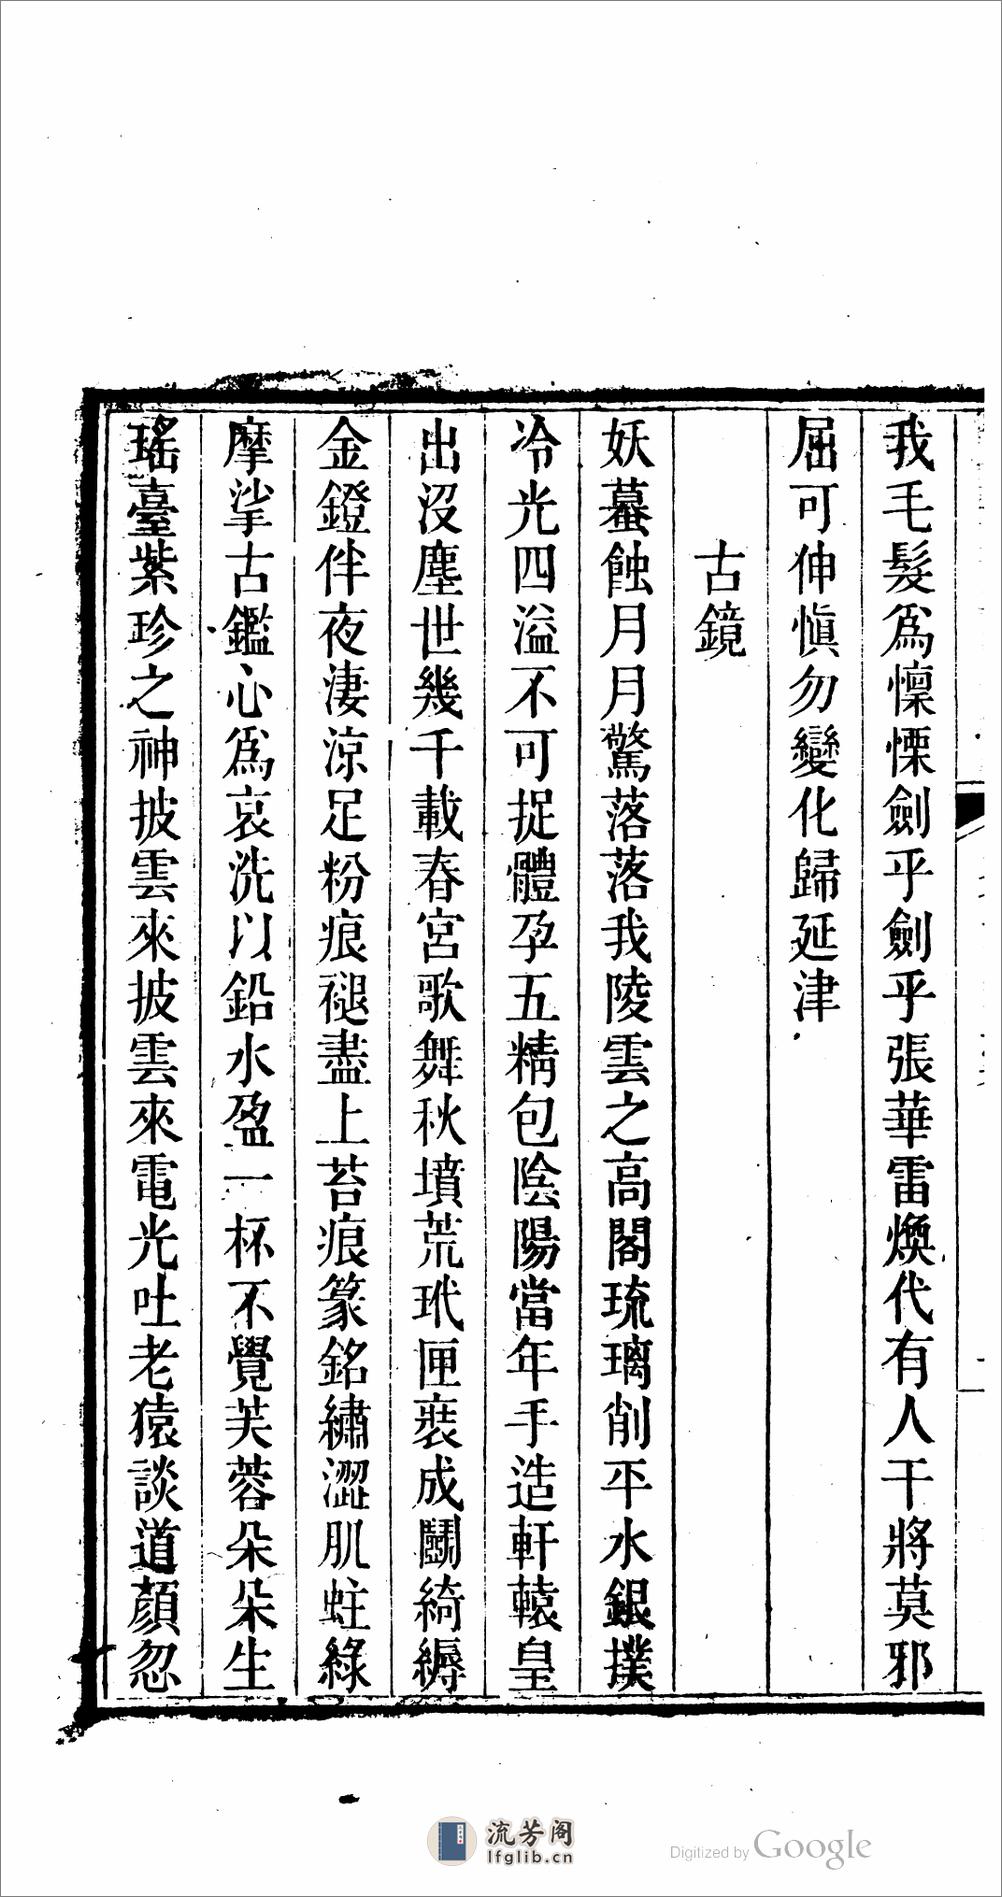 我毛髮爲懍慄劍乎劍乎張華雷煥代有人干將莫邪
屈可伸愼勿變化歸延津
古鏡
妖蟇蝕月月驚落落我陵雲之高閣琉璃削平水銀撲
冷光四溢不可捉體孕五精包陰陽當年手造軒轅皇
出沒塵世幾千載春宮歌舞秋墳荒玳匣裝成鬭綺縟
金鐙伴夜淒涼足粉痕褪盡上苔痕篆銘繡澀肌蛀綠
摩挲古鑑心爲哀洗以鉛水盈一杯不覺芙蓉朵朵生
瑤臺紫珍之神披雲來披雲來電光吐老猿談道顏忽
流芳阁
lfglib.cn
Digitized by Google